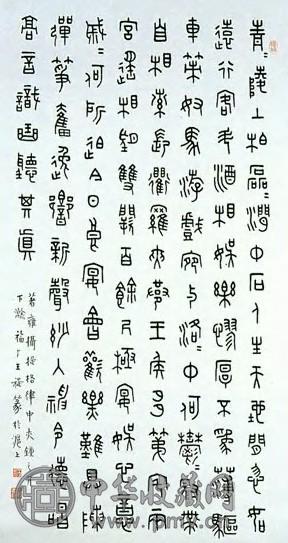 青=陵上柏磊=澗中石人生天地間忽如
遠行客斗酒相娛樂聊厚不為薄驅
車策駑馬游戲宛与洛=中何鬱=冠帶
自相索長衢羅夾巷王侯多第宅兩
宮遙相望雙闕百餘尺極宴娛心意
戚=何所迫今日良宴會歡樂難具陳
彈箏奮逸響新聲妙入神令德唱
高言識曲聽其真
著雍攝提格律中夾鍾之
下澣福厂王禔篆於滬上
中华收藏网